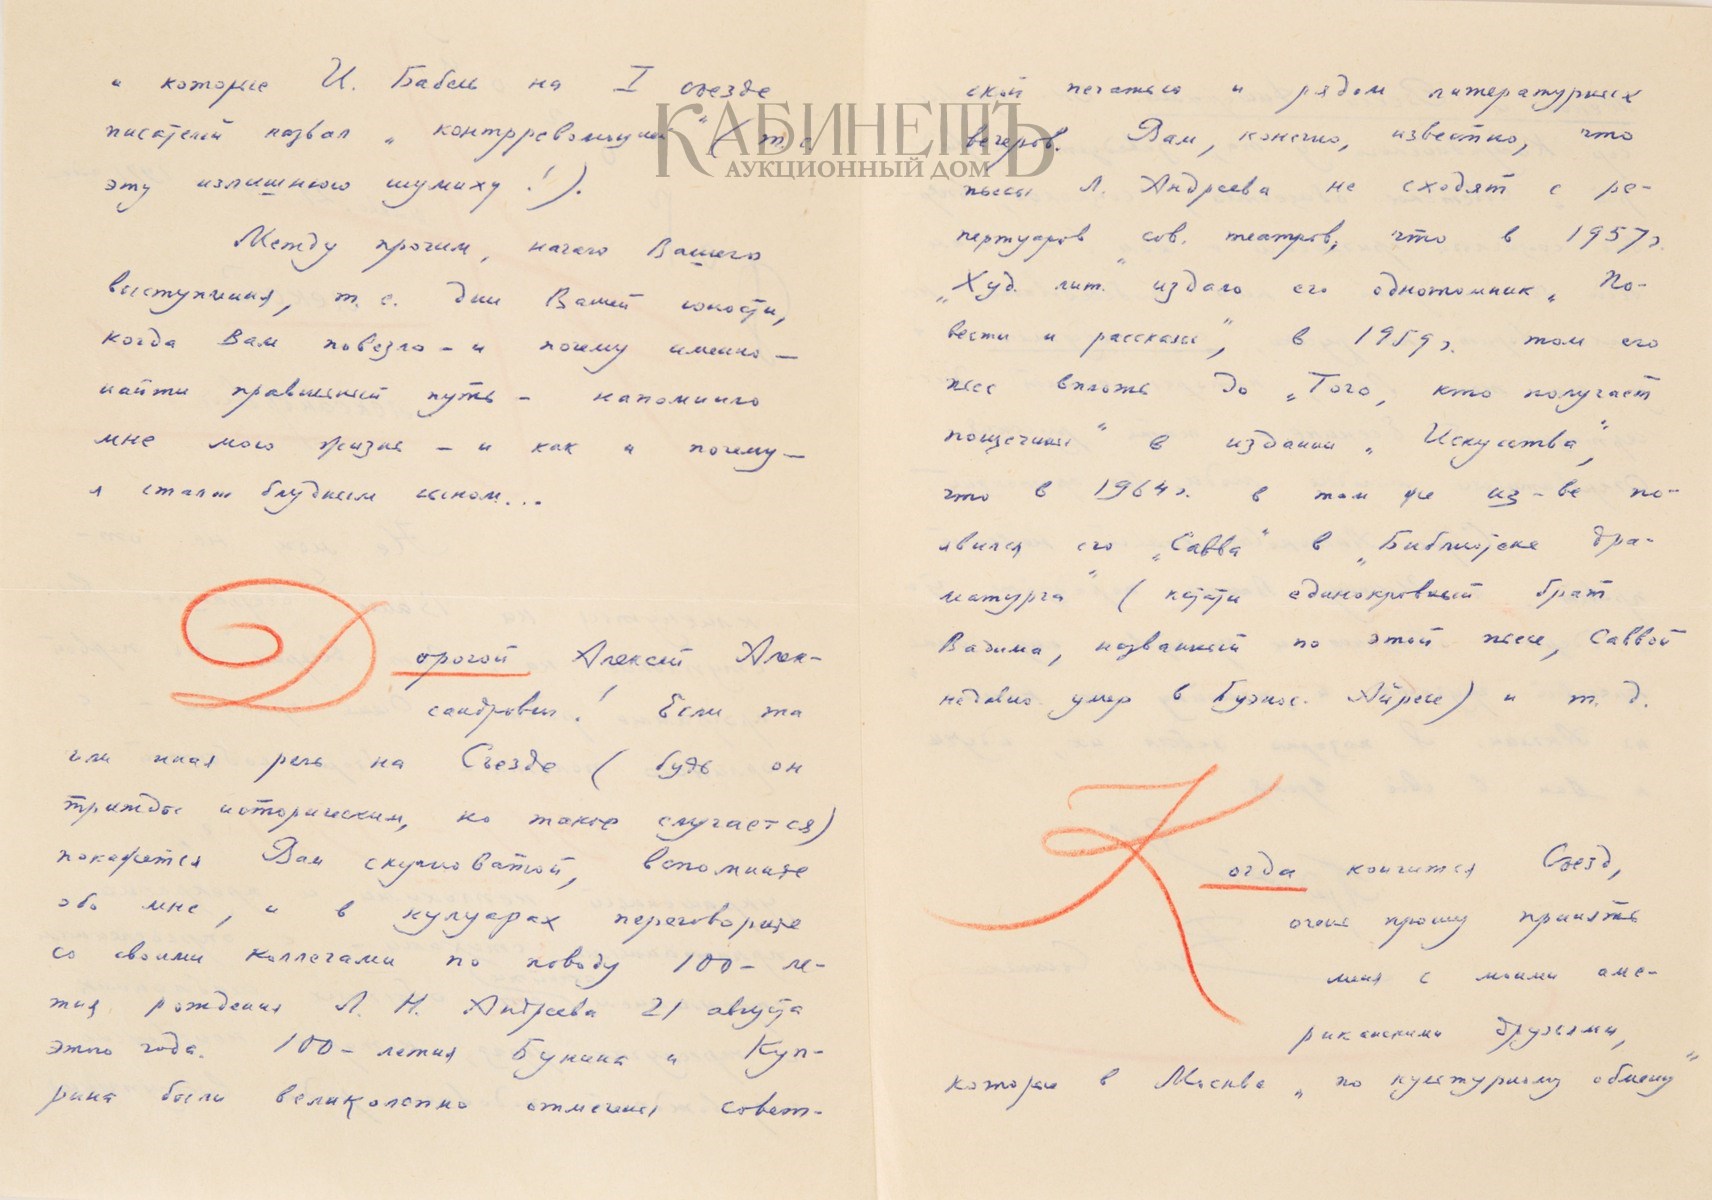 и которые И. Бабель на I съезде
писателей назвал „контрреволюцией“ (т. е.
эту излишнюю шумиху!).
Между прочим, начало Вашего
выступления, т. е. дни Вашей юности,
когда Вам повезло – и почему именно –
найти правильный путь – напомнило
мне мою жизнь – и как и почему –
я стал блудным сыном...
Дорогой Алексей Алек-
сандрович! Если та
или иная речь на Съезде (будь он
трижды историческим, но такое случается)
покажется Вам скучноватой, вспомните
обо мне, и в кулуарах переговорите
со своими коллегами по поводу 100-ле-
тия рождения Л. Н. Андреева 21 августа
этого года. 100-летия Бунина и Куп-
рина были великолепно отмечены совет-
ской печатью и рядом литературных
вечеров. Вам, конечно, известно, что
пьесы Л. Андреева не сходят с ре-
пертуаров сов. театров, что в 1957 г.
„Худ. лит.“ издало его однотомник „По-
вести и рассказы“, в 1959 г. том его
пьес вплоть до „Того, кто получает
пощечины“ в издании „Искусства“,
что в 1964 г. в том же из-ве по-
явился его „Савва“ в „Библиотеке дра-
матурга“ (кстати единокровный брат
Вадима, названный по этой пьесе, Саввой
недавно умер в Буэнос-Айресе) и т. д.
Когда кончится Съезд,
очень прошу принять
меня с моими аме-
риканскими друзьями,
которые в Москве „по культурному обмену“
КАБИНЕТЪ
АУКЦИОННЫЙ ДОМ